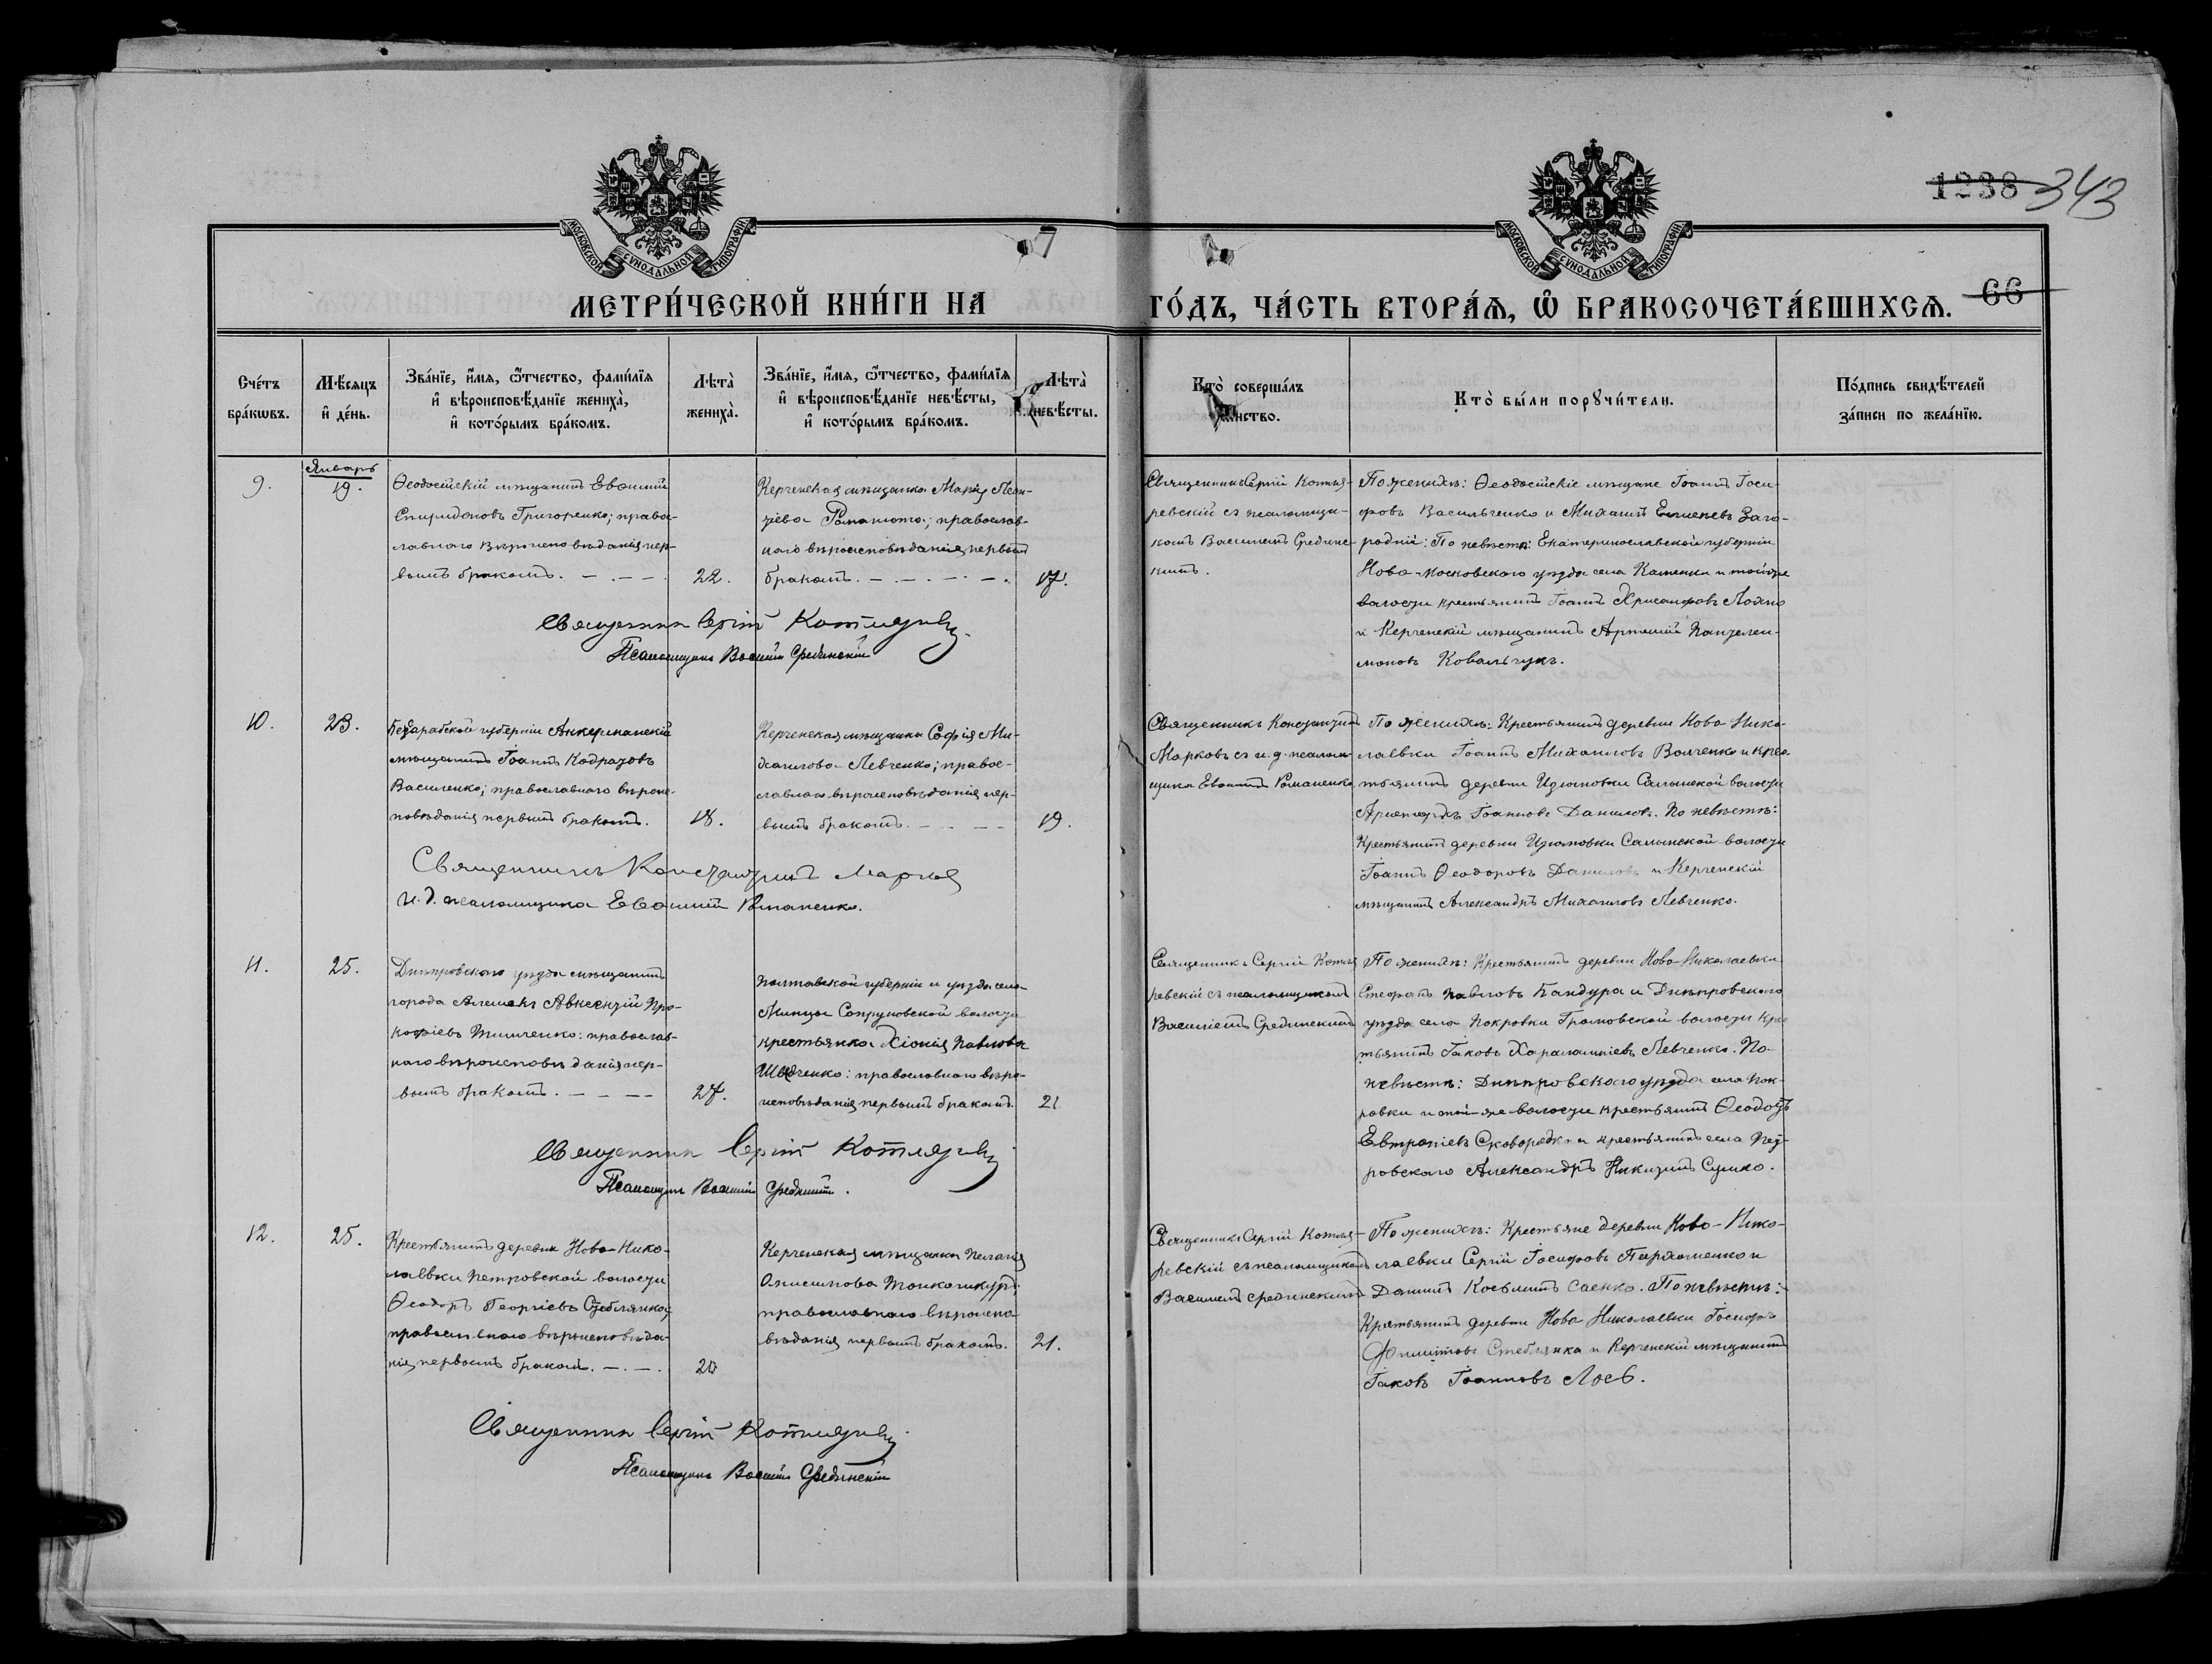 1238 343
МОСКОВСКОЙ СѴНОДАЛЬНОЙ ТИПОГРАФІИ
МОСКОВСКОЙ СѴНОДАЛЬНОЙ ТИПОГРАФІИ
7
МЕТРИ́ЧЕСКОЙ КНИ́ГИ НА ГО́ДЪ, ЧА́СТЬ ВТОРА́Ѧ, Ѽ БРАКОСОЧЕТА́ВШИХСѦ. 66
Сче́тъ
бра́кωвъ.
Мѣ́сѧцъ
и҆ де́нь.
Зва́нїе, и҆́мѧ, ѻ҆́тчество, фамилїѧ
и҆ вѣроисповѣ́данїе жениха̀,
и҆ кото́рымъ бра́комъ.
Лѣта̀
жениха̀.
Зва́нїе, и҆́мѧ, ѻ҆́тчество, фамилїѧ
и҆ вѣроисповѣ́данїе невѣ́сты,
и҆ кото́рымъ бра́комъ.
Лѣта̀
невѣ́сты.
Кто̀ соверша́лъ
таинство.
Кто̀ бы́ли порꙋчи́тели.
По́дпись свидѣ́телей
за́писи по жела́нїю.
Январь
9.
19.
Ѳеодосійскій мѣщанинъ Евѳимій
Спиридоновъ Григоренко; право-
славнаго вѣроисповѣданія пер-
вымъ бракомъ. — . — .
22.
Керченская мѣщанка Марія Леон-
тіева; православ-
наго вѣроисповѣданія первымъ
бракомъ. — . — . — . — .
17.
Священникъ Сергій Котля-
ревскій съ псаломщи-
комъ Василіемъ Срединс-
кимъ.
По женихѣ: Ѳеодосійскіе мѣщане Іоаннъ Іоси-
фовъ Васильченко и Михаилъ Заго-
родній: По невѣстѣ: Екатеринославской губерніи
Ново-Московскаго уѣзда села Каменки и тойже
волости крестьянинъ Іоаннъ Хрисанфовъ
и Керченскій мѣщанинъ Артемій Пантелеи-
моновъ Ковальчукъ.
Священникъ Сергій Котляревскій
Псаломщикъ Василій Срединскій
10.
23.
Бессарабской губерніи Аккерманскій
мѣщанинъ Іоаннъ Кодратовъ
Василенко; православнаго вѣроис-
повѣданія первымъ бракомъ.
18.
Керченская мѣщанка Софія Ми-
хаилова Левченко; право-
славнаго вѣроисповѣданія пер-
вымъ бракомъ. — — — —
19.
Священникъ Константинъ
Марковъ съ и. д. псалом-
щика Евѳиміемъ Романенко
По женихѣ: Крестьянинъ деревни Ново Нико-
лаевки Іоаннъ Михаиловъ Волченко и крес-
тьянинъ деревни Изюмовки Салынской волости
Іоанновъ Даниловъ. По невѣстѣ:
Крестьянинъ деревни Изюмовки Салынской волости
Іоаннъ Ѳеодоровъ Даниловъ и Керченскій
мѣщанинъ Александръ Михаиловъ Левченко.
Священникъ Константинъ Марковъ
И. д. псаломщика Евѳимій Романенко.
11.
25.
Днѣпровскаго уѣзда мѣщанинъ
города Алешекъ Авксентій Про-
кофіевъ Тимченко: православ-
наго вѣроисповѣданія пер-
вымъ бракомъ. — — — —
27.
Полтавской губерніи и уѣзда села
Мильцы Супруновской волости
крестьянка Хіонія Павлова
Шевченко: православнаго вѣро-
исповѣданія первымъ бракомъ.
21
Священникъ Сергій Котля-
ревскій съ псаломщикомъ
Василіемъ Срединскимъ
По женихѣ: Крестьянинъ деревни Ново-Николаевки
Стефанъ Павловъ Бандура и Днѣпровскаго
уѣзда села Покровки Громовской волости крес-
тьянинъ Іаковъ Харалампіевъ Левченко. По-
невѣстѣ: Днѣпровскаго уѣзда села Пок-
ровки и той-же волости крестьянинъ Ѳеодотъ
Евтропіевъ Сковородко и крестьянинъ села Пет-
ровскаго Александръ Никитинъ Сушко.
Священникъ Сергій Котляревскій
Псаломщикъ Василій Срединскій.
12.
25.
Крестьянинъ деревни Ново-Нико-
лаевки Петровской волости
Ѳеодоръ Георгіевъ Стеблянко;
православнаго вѣроисповѣда-
нія первымъ бракомъ. — . — .
20
Керченская мѣщанка Пелагія
Онисимова;
православнаго вѣроиспо-
вѣданія первымъ бракомъ.
21.
Священникъ Сергій Котля-
ревскій съ псаломщикомъ
Василіемъ Срединскимъ
По женихѣ: Крестьяне деревни Ново-Нико-
лаевки Сергій Іосифовъ Пархоменко и
Даніилъ Косьминъ Саенко. По невѣстѣ:
Крестьянинъ деревни Ново Николаевки Іосифъ
Филипповъ Стеблянка и Керченскій мѣщанинъ
Іаковъ Іоанновъ Лоевъ.
Священникъ Сергій Котляревскій
Псаломщикъ Василій Срединскій